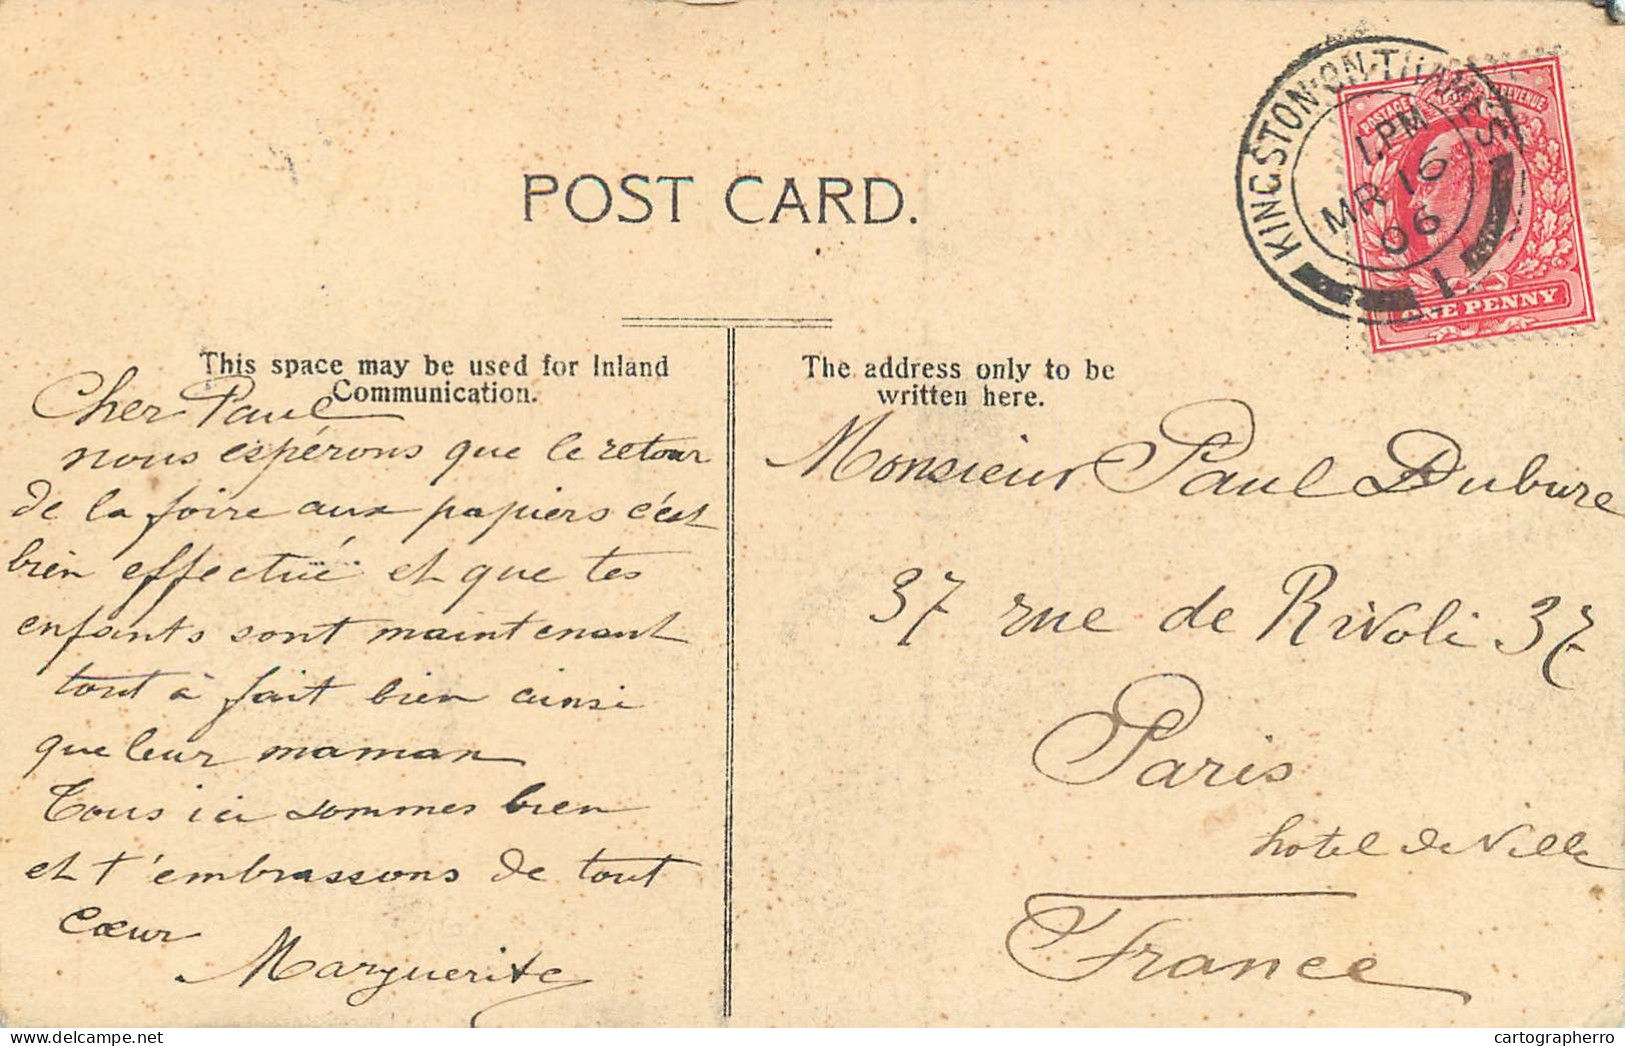 POST CARD.
KINGSTON·ON·THAMES
1.PM
MR 16
06
1
POSTAGE
REVENUE
ONE PENNY
This space may be used for Inland
Communication.
The address only to be
written here.
Cher Paul
nous espérons que le retour
de la foire aux papiers c'est
bien effectué et que tes
enfants sont maintenant
tout à fait bien ainsi
que leur maman
Tous ici sommes bien
et t'embrassons de tout
cœur
Marguerite
Monsieur Paul Dubure
37 rue de Rivoli 37
Paris
hotel de Ville
France
cartographerro